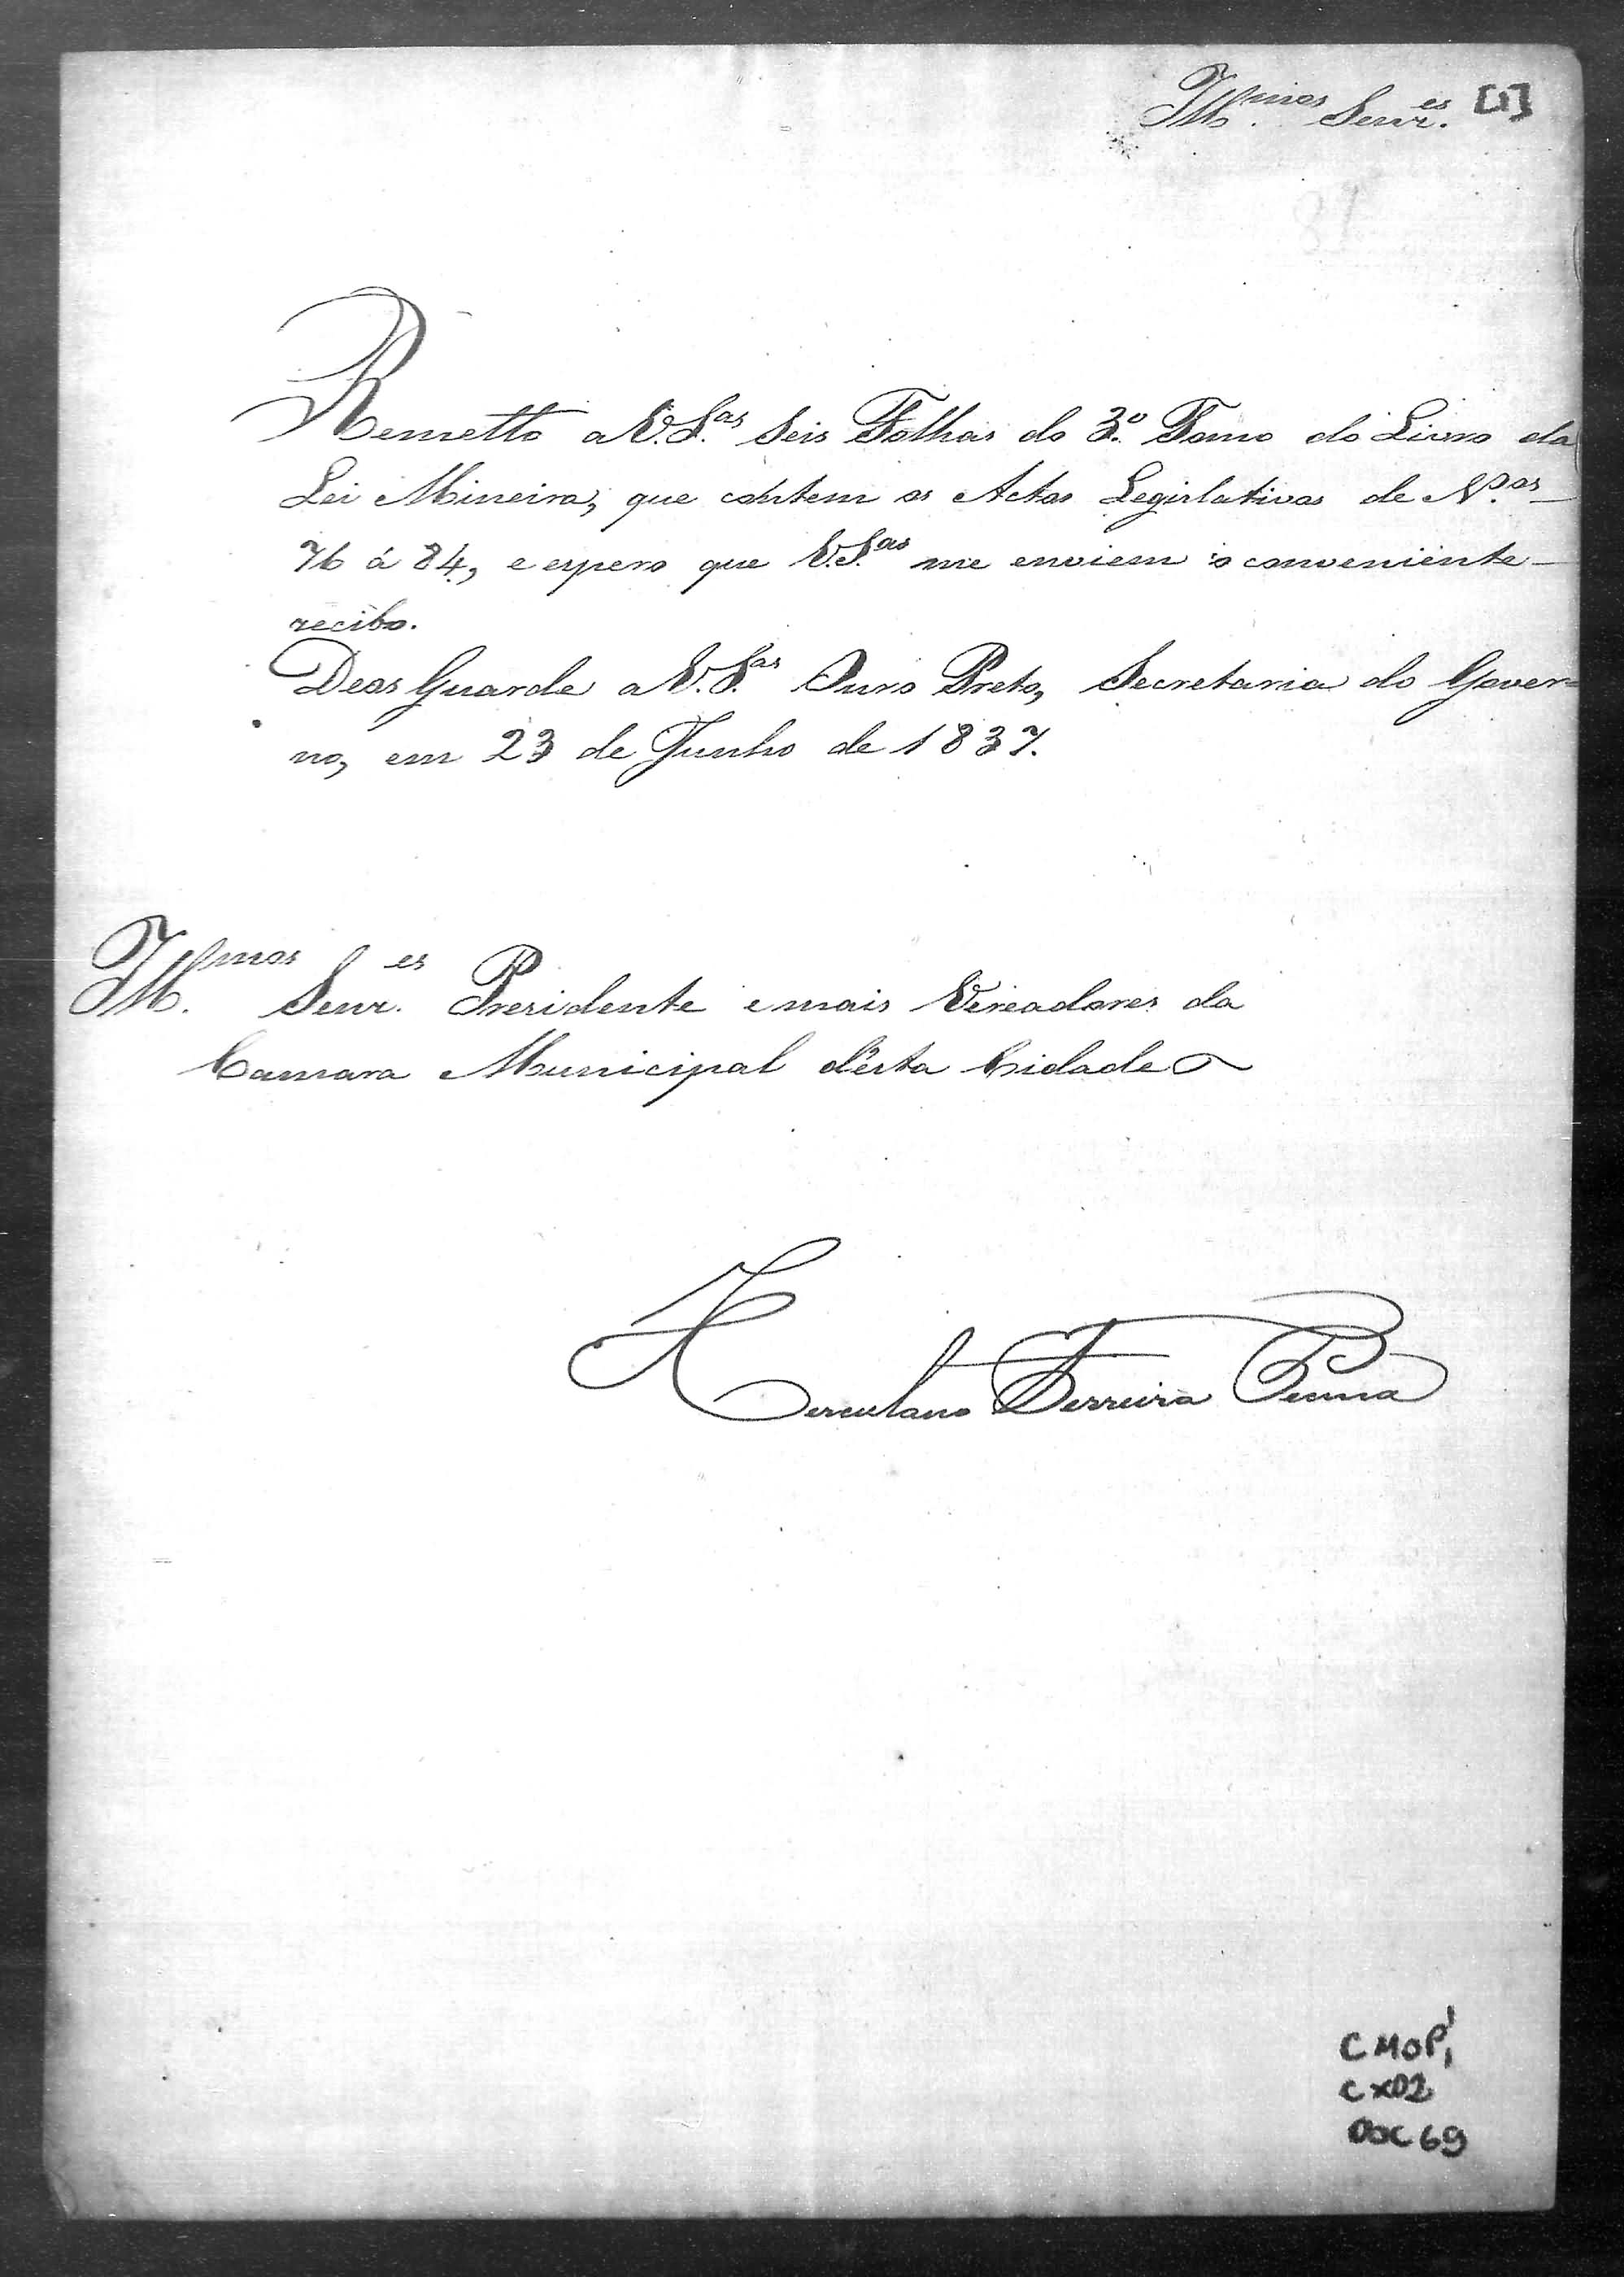 Illmos. Senres. [1]
Remetto a V.S.as Seis Folhas do 3º. Tomo do Livro da
Lei Mineira, que contem os Actos Legislativos de N.os
76 á 84, e espero que V.S.as me enviem o conveniente
recibo.
Deos Guarde a V.S.as Ouro Preto, Secretaria do Gover=
no, em 23 de Junho de 1837.
Illmos. Senres. Presidente e mais Vereadores da
Camara Municipal d'esta Cidade
Herculano Ferreira Penna
CMOP
CX02
DOC 69